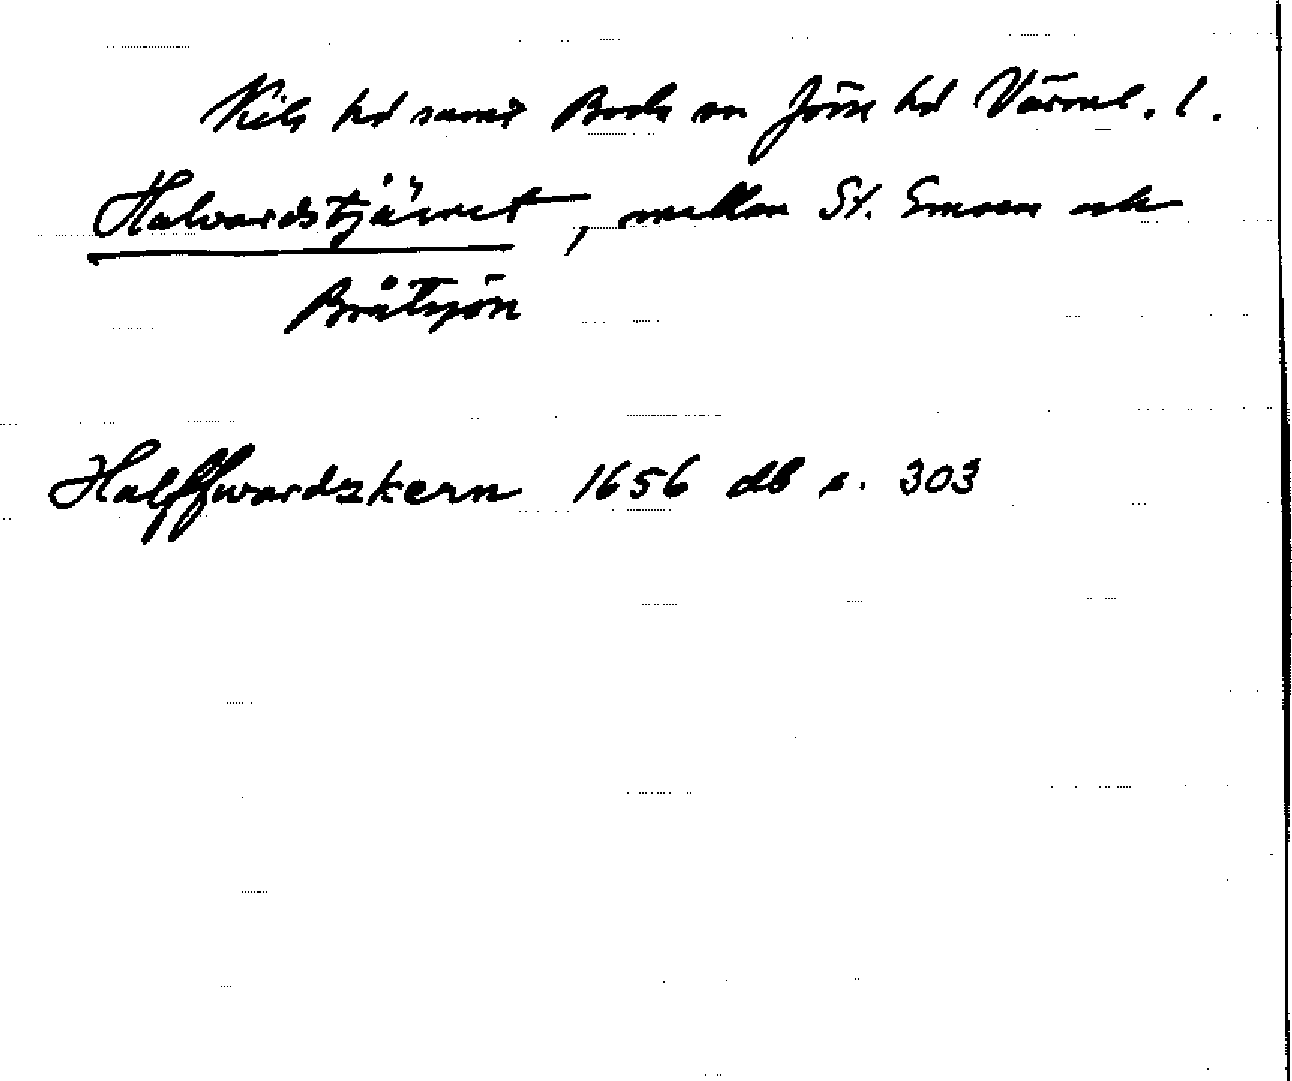 Kils hd samt Boda sn Jösse hd Värml. l.
Halvardstjärnet, mellan St. Emsen och
Bråtsjön
Halffwardzkern 1656 db s. 303